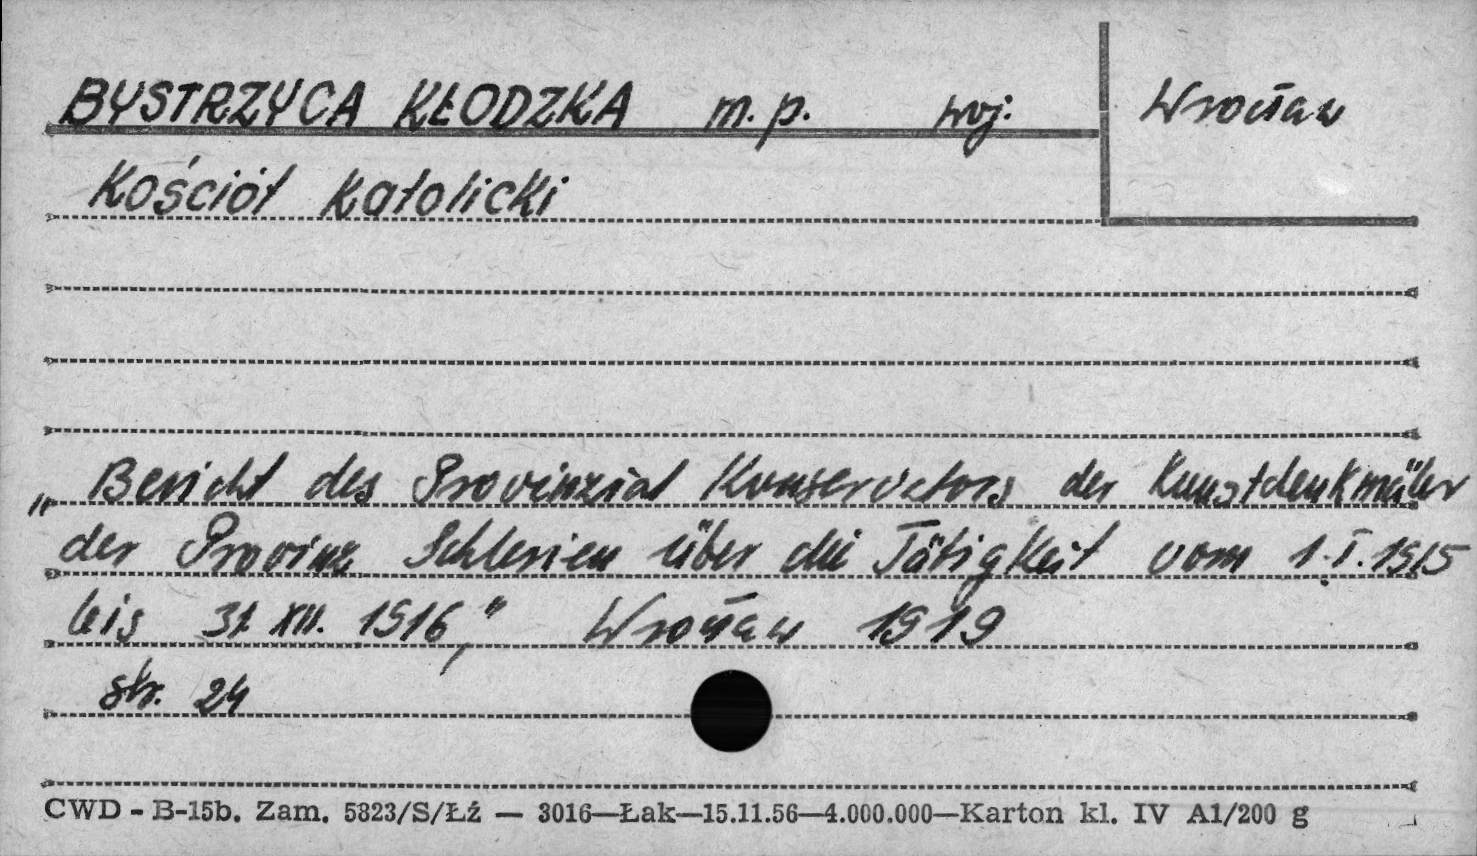 BYSTRZYCA KŁODZKA m. p. woj. Wrocław
Kościół Katolicki
„Bericht des Provinzial Konservators der Kunstdenkmäler
der Provinz Schlesien über die Tätigkeit vom 1.I.1915
bis 31 XII. 1916," Wrocław 1919
str. 24
CWD - B-15b. Zam. 5823/S/Łź — 3016—Łak—15.11.56—4.000.000—Karton kl. IV A1/200 g